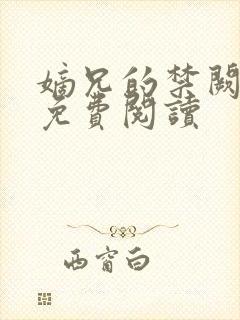 嫡兄的禁闕
免費閱讀
西窗白